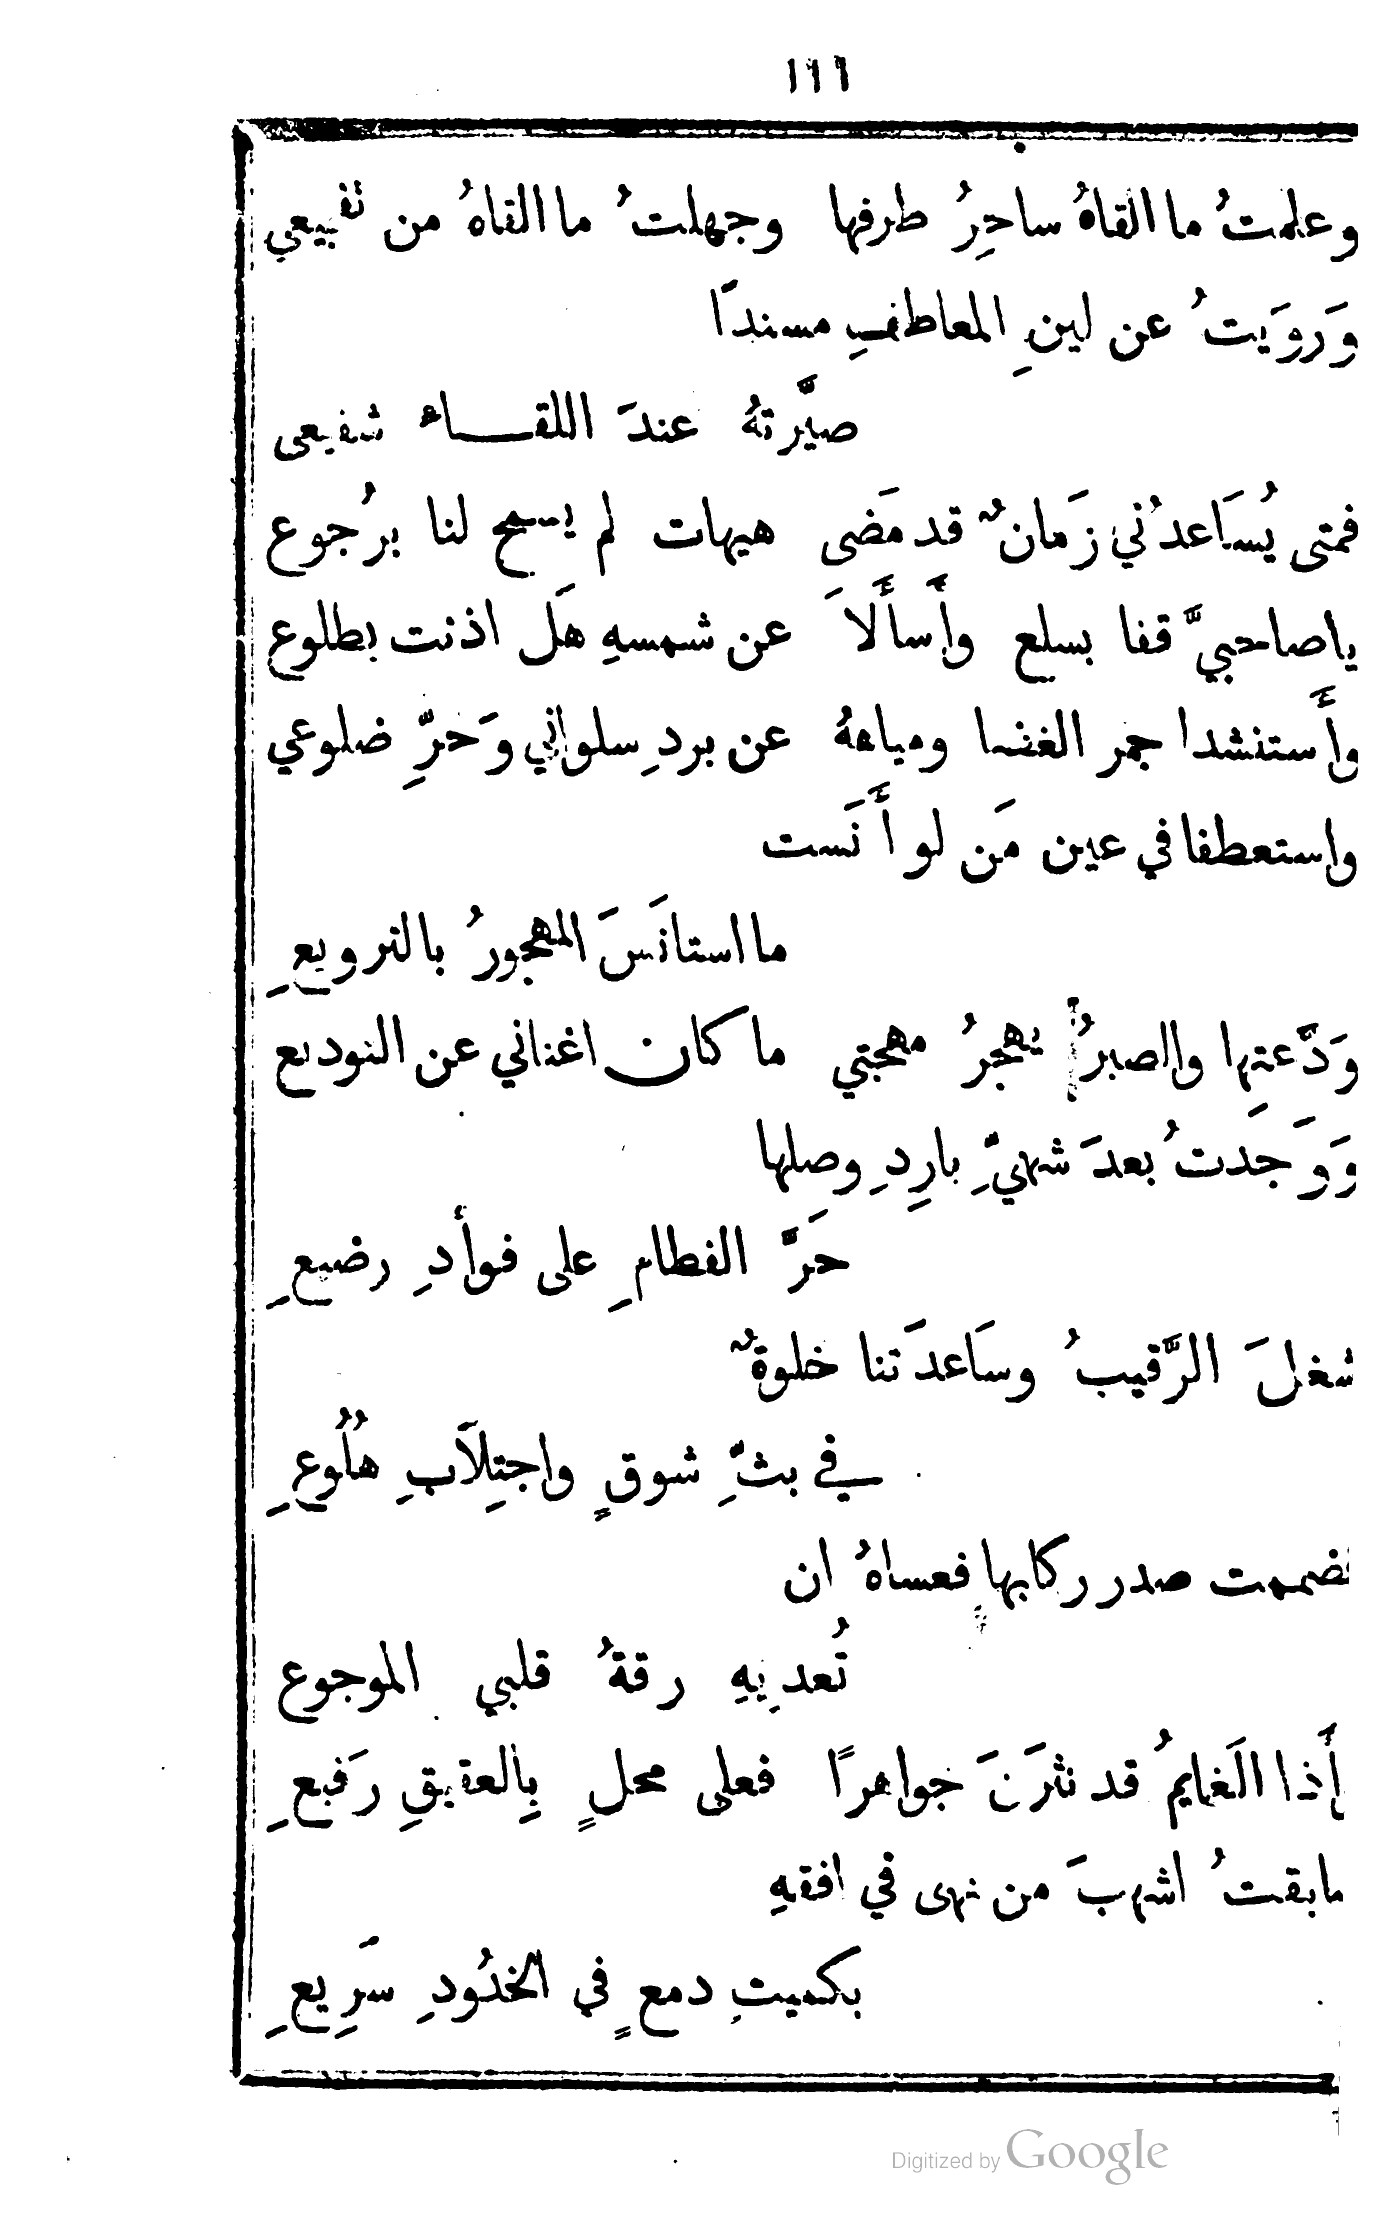 ١١٦
وعلمتُ ما القاهُ ساحِرُ طرفها وجهلتُ ما القاهُ من تقبيعي
وَرويَتُ عن لينِ المعاطفِ مسنداً
صيَّرتهُ عندَ اللقاء شفيعى
فمتى يُسَاعدُني زَمانٌ قد مَضى هيهات لم يسمح لنا برُجوع
ياصاحبيَّ قفا بسلع وأَسأَلاَ عن شمسهِ هَل اذنت بطلوع
وأَستنشدا جمر الغضا ومياههُ عن بردِ سلواني وَحرِّ ضلوعي
واستعطفا في عين مَن لو أَنَست
ما استانَسَ المهجورُ بالترويعِ
وَدَّعتِها والصبرُ يهجرُ مهجتي ما كان اغناني عن التوديع
وَوَجَدتُ بعدَ شهيِّ بارِدِ وصلها
حَرَّ الفطامِ على فوأدِ رضيعِ
شغلَ الرَّقيبُ وسَاعدَتنا خلوةٌ
في بثِّ شوقٍ واجتِلاَبِ هُلُوعِ
فضممت صدر ركابها فعساهُ ان
تُعديهِ رقةُ قلبي الموجوع
أَذا الَغمايمُ قد نثرَنَ جواهرًا فعلى محلٍ بِالعقيقِ رَفيعِ
مابقتُ اشهبَ من نهى في افقهِ
بكميتِ دمعٍ في الخدُودِ سَرِيعِ
Digitized by Google